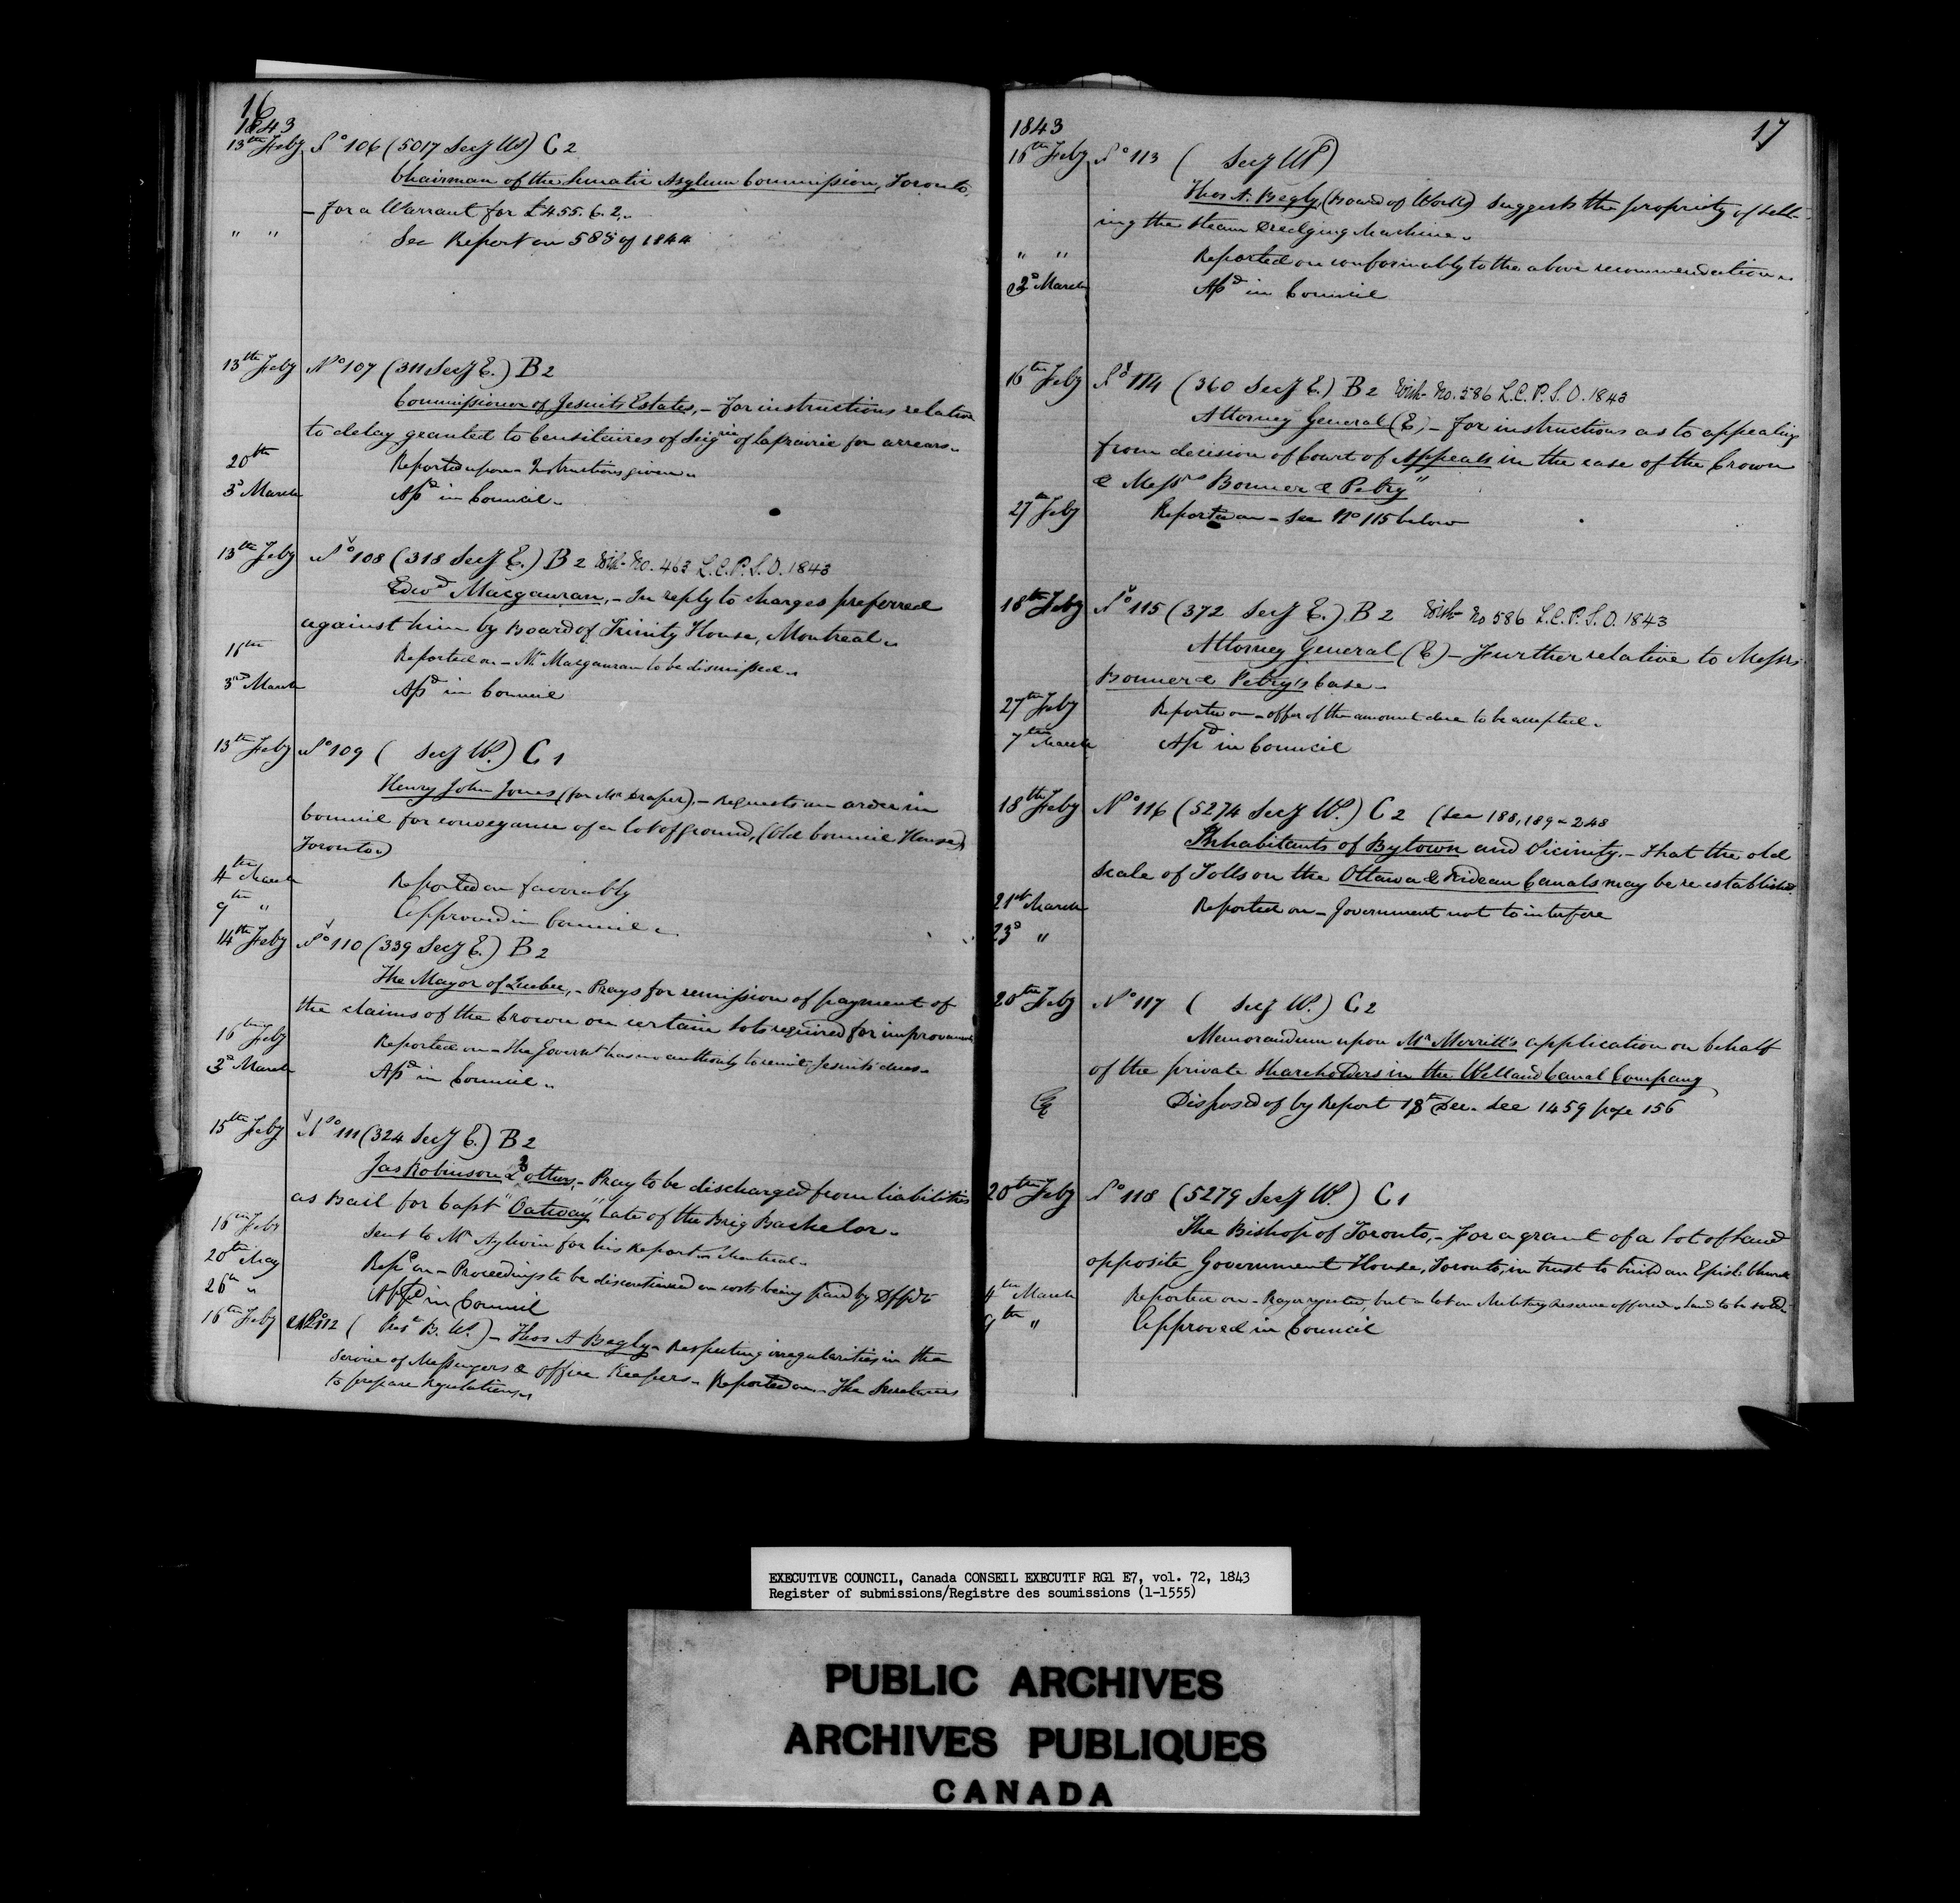 16
1843
13th Feby No 106 (5017 Secy W) C 2
Chairman of the Lunatic Asylum Commission, Toronto,
- For a Warrant for £455. 6. 2.
" " See Report on 585 of 1844
13th Feby No 107 (311 Secy E.) B 2
Commissioner of Jesuits Estates, - For instructions relative
to delay granted to Censitaires of Seigrie of Laprairie for arrears.
20th Reported upon - Instructions given.
3d March Apd in Council.
13th Feby No 108 (318 Secy E.) B 2 With No. 463 L.C.P.S.O. 1843
Edwd Macgauran, - In reply to charges preferred
against him by Board of Trinity House, Montreal.
16th Reported on - Mr Macgauran to be dismissed.
3rd March Apd in Council
13th Feby No 109 ( Secy W.) C 1
Henry John Jones (for Mr Draper), - Requests an order in
Council for conveyance of a lot of ground, (Old Council House)
Toronto)
4th March Reported on favorably
9th " Approved in Council
14th Feby No 110 (339 Secy E.) B 2
The Mayor of Quebec, - Prays for remission of payment of
the claims of the Crown on certain lots required for improvements
16th Feby Reported on - The Govermt has no authority to remit Jesuits' dues.
3d March Apd in Council.
15th Feby No 111 (324 Secy E.) B 2
Jas Robinson & 2 others, - Pray to be discharged from liabilities
as Bail for Capt "Oatway" late of the Brig Bachelor.
16th Feby Sent to Mr Aylwin for his Report Montreal.
20th May Repd on - Proceedings to be discontinued on costs being paid by Dffdt
26th " Appd in Council
16th Feby No 112 ( B. W.) - Thos A Begly - Respecting irregularities in the
Service of Messengers & Office Keepers - Reported on - The Secretaries
to prepare Regulations.
17
1843
16th Feby No 113 ( Secy W)
Thos A. Begly, (Board of Works) Suggests the propriety of sell-
ing the Steam Dredging Machine.
" " Reported on conformably to the above recommendation.
3d March Apd in Council
16th Feby No 114 (360 Secy E.) B 2 With No. 586 L.C.P.S.O. 1843
Attorney General (E) - For instructions as to appealing
from decision of Court of Appeals in the case of the Crown
& Messrs Bonner & Petry"
27th Feby Reported on - See No 115 below
18th Feby No 115 (372 Secy E.) B 2 With No 586 L.C.P.S.O. 1843
Attorney General (E) - Further relative to Messrs
Bonner & Petry's Case.
27th Feby Reported on - offer of the amount due to be accepted.
7th March Apd in Council
18th Feby No 116 (5274 Secy W.) C 2 (See 188, 189 & 248
Inhabitants of Bytown and Vicinity. - That the old
scale of Tolls on the Ottawa & Rideau Canals may be re-established.
21st March Reported on - Government not to interfere
23d "
20th Feby No 117 ( Secy W.) C 2
Memorandum upon Mr Merritt's application on behalf
of the private Shareholders in the Welland Canal Company
Disposed of by Report 18th Dec. See 1459 page 156
20th Feby No 118 (5279 Secy W.) C 1
The Bishop of Toronto, - For a grant of a lot of Land
opposite Government House, Toronto, in trust to build an Episl. Church
4th March Reported on - Prayer rejected, but a lot on Military Reserve offered - land to be sold.
9th " Approved in Council
EXECUTIVE COUNCIL, Canada CONSEIL EXECUTIF RG1 E7, vol. 72, 1843
Register of submissions/Registre des soumissions (1-1555)
PUBLIC ARCHIVES
ARCHIVES PUBLIQUES
CANADA